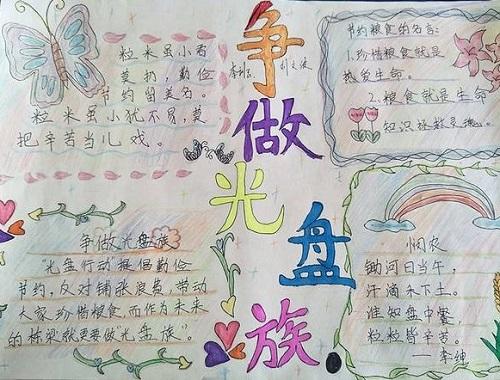 争
做
光
盘
族
粒米虽小君
莫扔，勤俭
节约留美名。
粒米虽小犹不易，莫
把辛苦当儿戏。
节约粮食的名言：
1.珍惜粮食就是
热爱生命。
2.粮食就是生命
知识拯救灵魂。
争做光盘族
“光盘行动”提倡勤俭
节约，反对铺张浪费，带动
大家珍惜粮食而作为未来
的栋梁就更要做“光盘族”。
悯农
锄河日当午，
汗滴禾下土。
谁知盘中餐，
粒粒皆辛苦。
——李绅